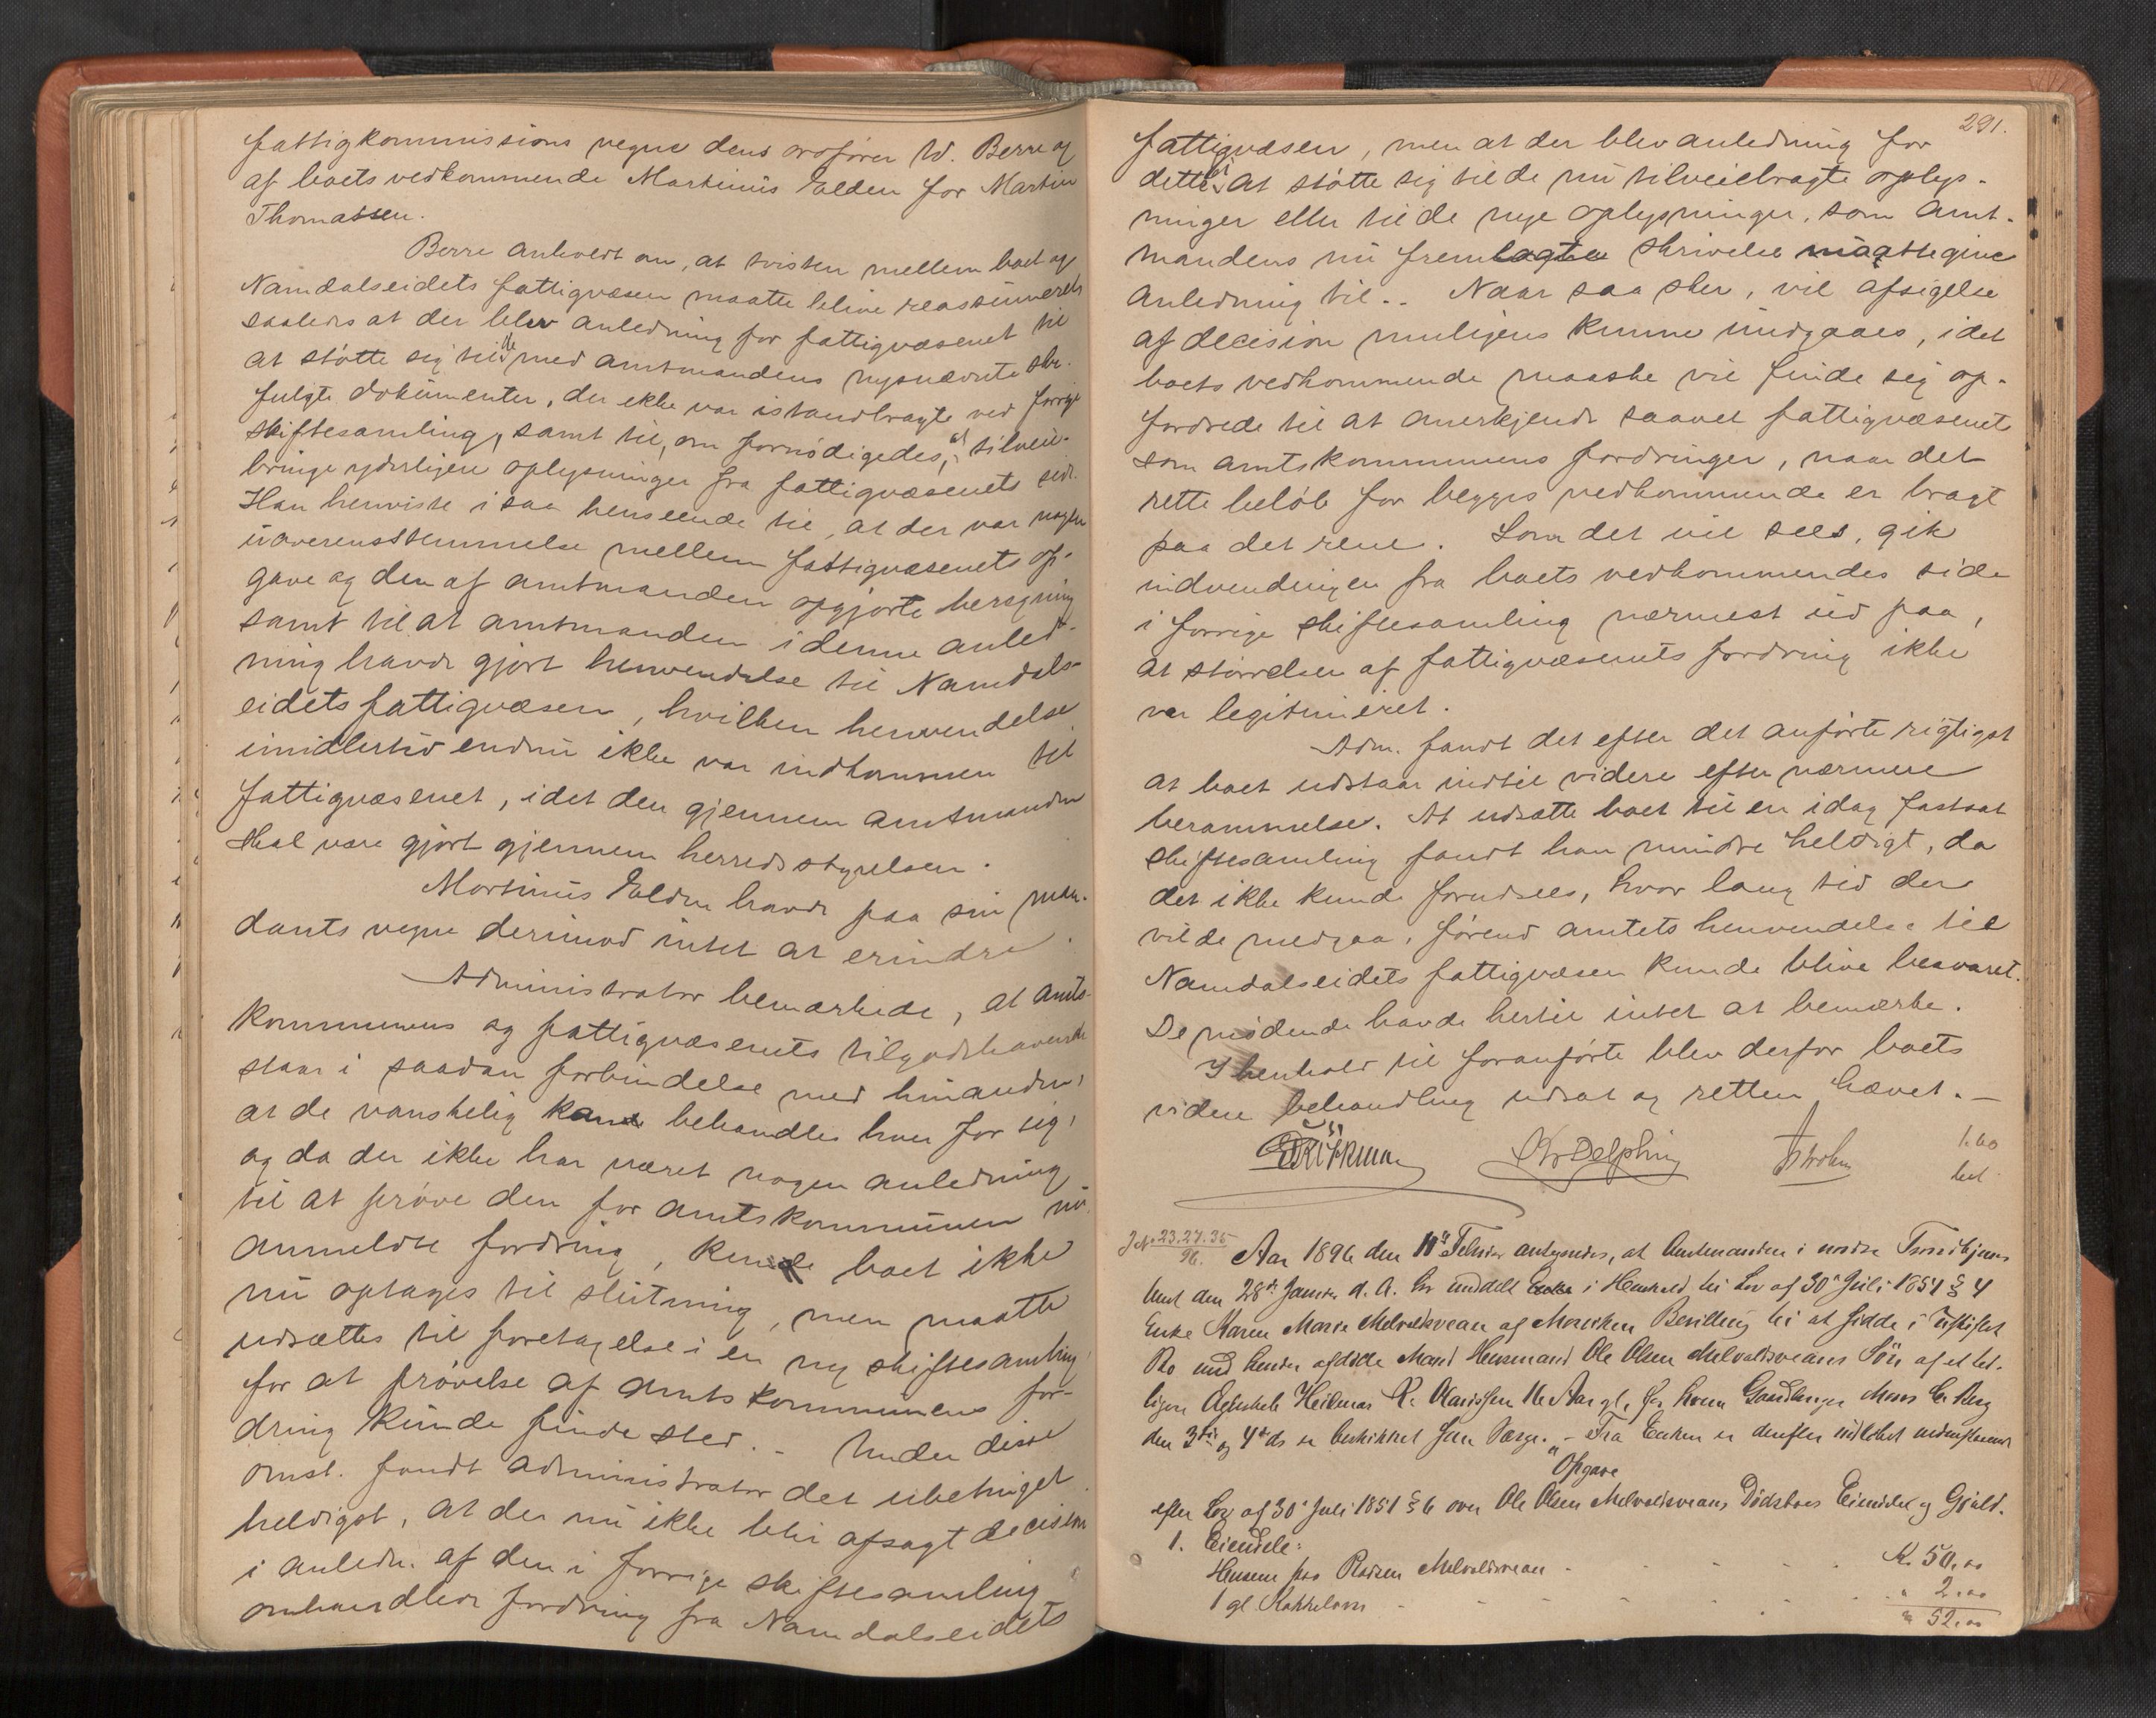 fattigkommissions vegne dens ordfører W. Berre og
af boets vedkommende Martinus Elden for Martin
Thomassen.
Berre anholdt om, at tvisten mellem boet og
Namdalseidets fattigvæsen maatte blive reassumeret
saaledes at der blev anledning for fattigvæsenet til
at støtte sig til de med amtmandens nysnævnte skr.
fulgte dokumenter, der ikke var istandbragte ved forrige
skiftesamling, samt til, om fornødigedes, at tilveie-
bringe yderligere oplysninger fra fattigvæsenets side.
Han henviste i saa henseende til, at der var nogen
uoverensstemmelse mellem fattigvæsenets op-
gave og den af amtmanden opgjorte beregning
samt til at amtmanden i denne anled-
ning havde gjort henvendelse til Namdals-
eidets fattigvæsen, hvilken henvendelse
imidlertid endnu ikke var indkommen til
fattigvæsenet, idet den gjennem amtmanden
skal være gjort gjennem herredsstyrelsen.
Martinus Elden havde paa sin man-
dants vegne derimod intet at erindre.
Administrator bemærkede, at amts-
kommunens og fattigvæsenets tilgodehavende
staar i saadan forbindelse med hinanden,
at de vanskelig kan behandles hver for sig,
og da der ikke har været nogen anledning
til at prøve den for amtskommunen nu
anmeldte fordring, kunde boet ikke
nu optages til slutning, men maatte
udsættes til foretagelse i en ny skiftesamling
for at prøvelse af amtskommunens for-
dring kunde finde sted. - Under disse
omst. fandt administrator det ubetinget
heldigst, at der nu ikke blir afsagt decision
i anledn. af den i forrige skiftesamling
omhandlede fordring fra Namdalseidets
291.
fattigvæsen, men at der blev anledning for
dette at støtte sig til de nu tilveiebragte oplys-
ninger eller til de nye oplysninger, som amt-
mandens nu fremlagte skrivelse maatte give
anledning til. Naar saa sker, vil afsigelse
af decision muligens kunne undgaaes, idet
boets vedkommende maaske vil finde sig op-
fordrede til at anerkjende saavel fattigvæsenets
som amtskommunens fordringer, naar det
rette beløb for begges vedkommende er bragt
paa det rene. Som det vil sees, gik
indvendingen fra boets vedkommendes side
i forrige skiftesamling nærmest ud paa,
at størrelsen af fattigvæsenets fordring ikke
var legitimeret.
Adm. fandt det efter det anførte rigtigst
at boet udstaar indtil videre efter nærmere
berammelse. At udsætte boet til en idag fastsat
skiftesamling fandt han mindre heldigt, da
det ikke kunde forudsees, hvor lang tid der
vilde medgaa, førend amtets henvendelse til
Namdalseidets fattigvæsen kunde blive besvaret.
De mødende havde hertil intet at bemærke.
I henhold til foranførte blev derfor boets
videre behandling udsat og retten hævet. -
Delphin
J. N. 23.27.35
96.
Aar 1896 den 11te Februar antegnedes, at Amtmanden i nordre Trondhjems
Amt den 28de Januar d. A. har meddelt i Henhold til Lov af 30te Juli 1851 § 4
Enke Karen Marie Melvoldsvean af Bevilling til at sidde i uskiftet
Bo med hendes afdøde Mand Husmand Ole Olsen Melvoldsveans Søn af et tid-
ligere Egteskab 16 Aar gl., for hvem Gaardbruger
den 3die og 4de ds er beskikket som Værge. - Fra Enken er derefter indløbet nedenstaaende
"Opgave
efter Lov af 30te Juli 1851 § 6 over Ole Olsen Melvoldsveans Dødsbos Eiendele og Gjæld.
1. Eiendele:
Husene paa Pladsen Melvoldsvean - K. 50.00
1 gl. Kakkelovn - " 2.00
" 52.00